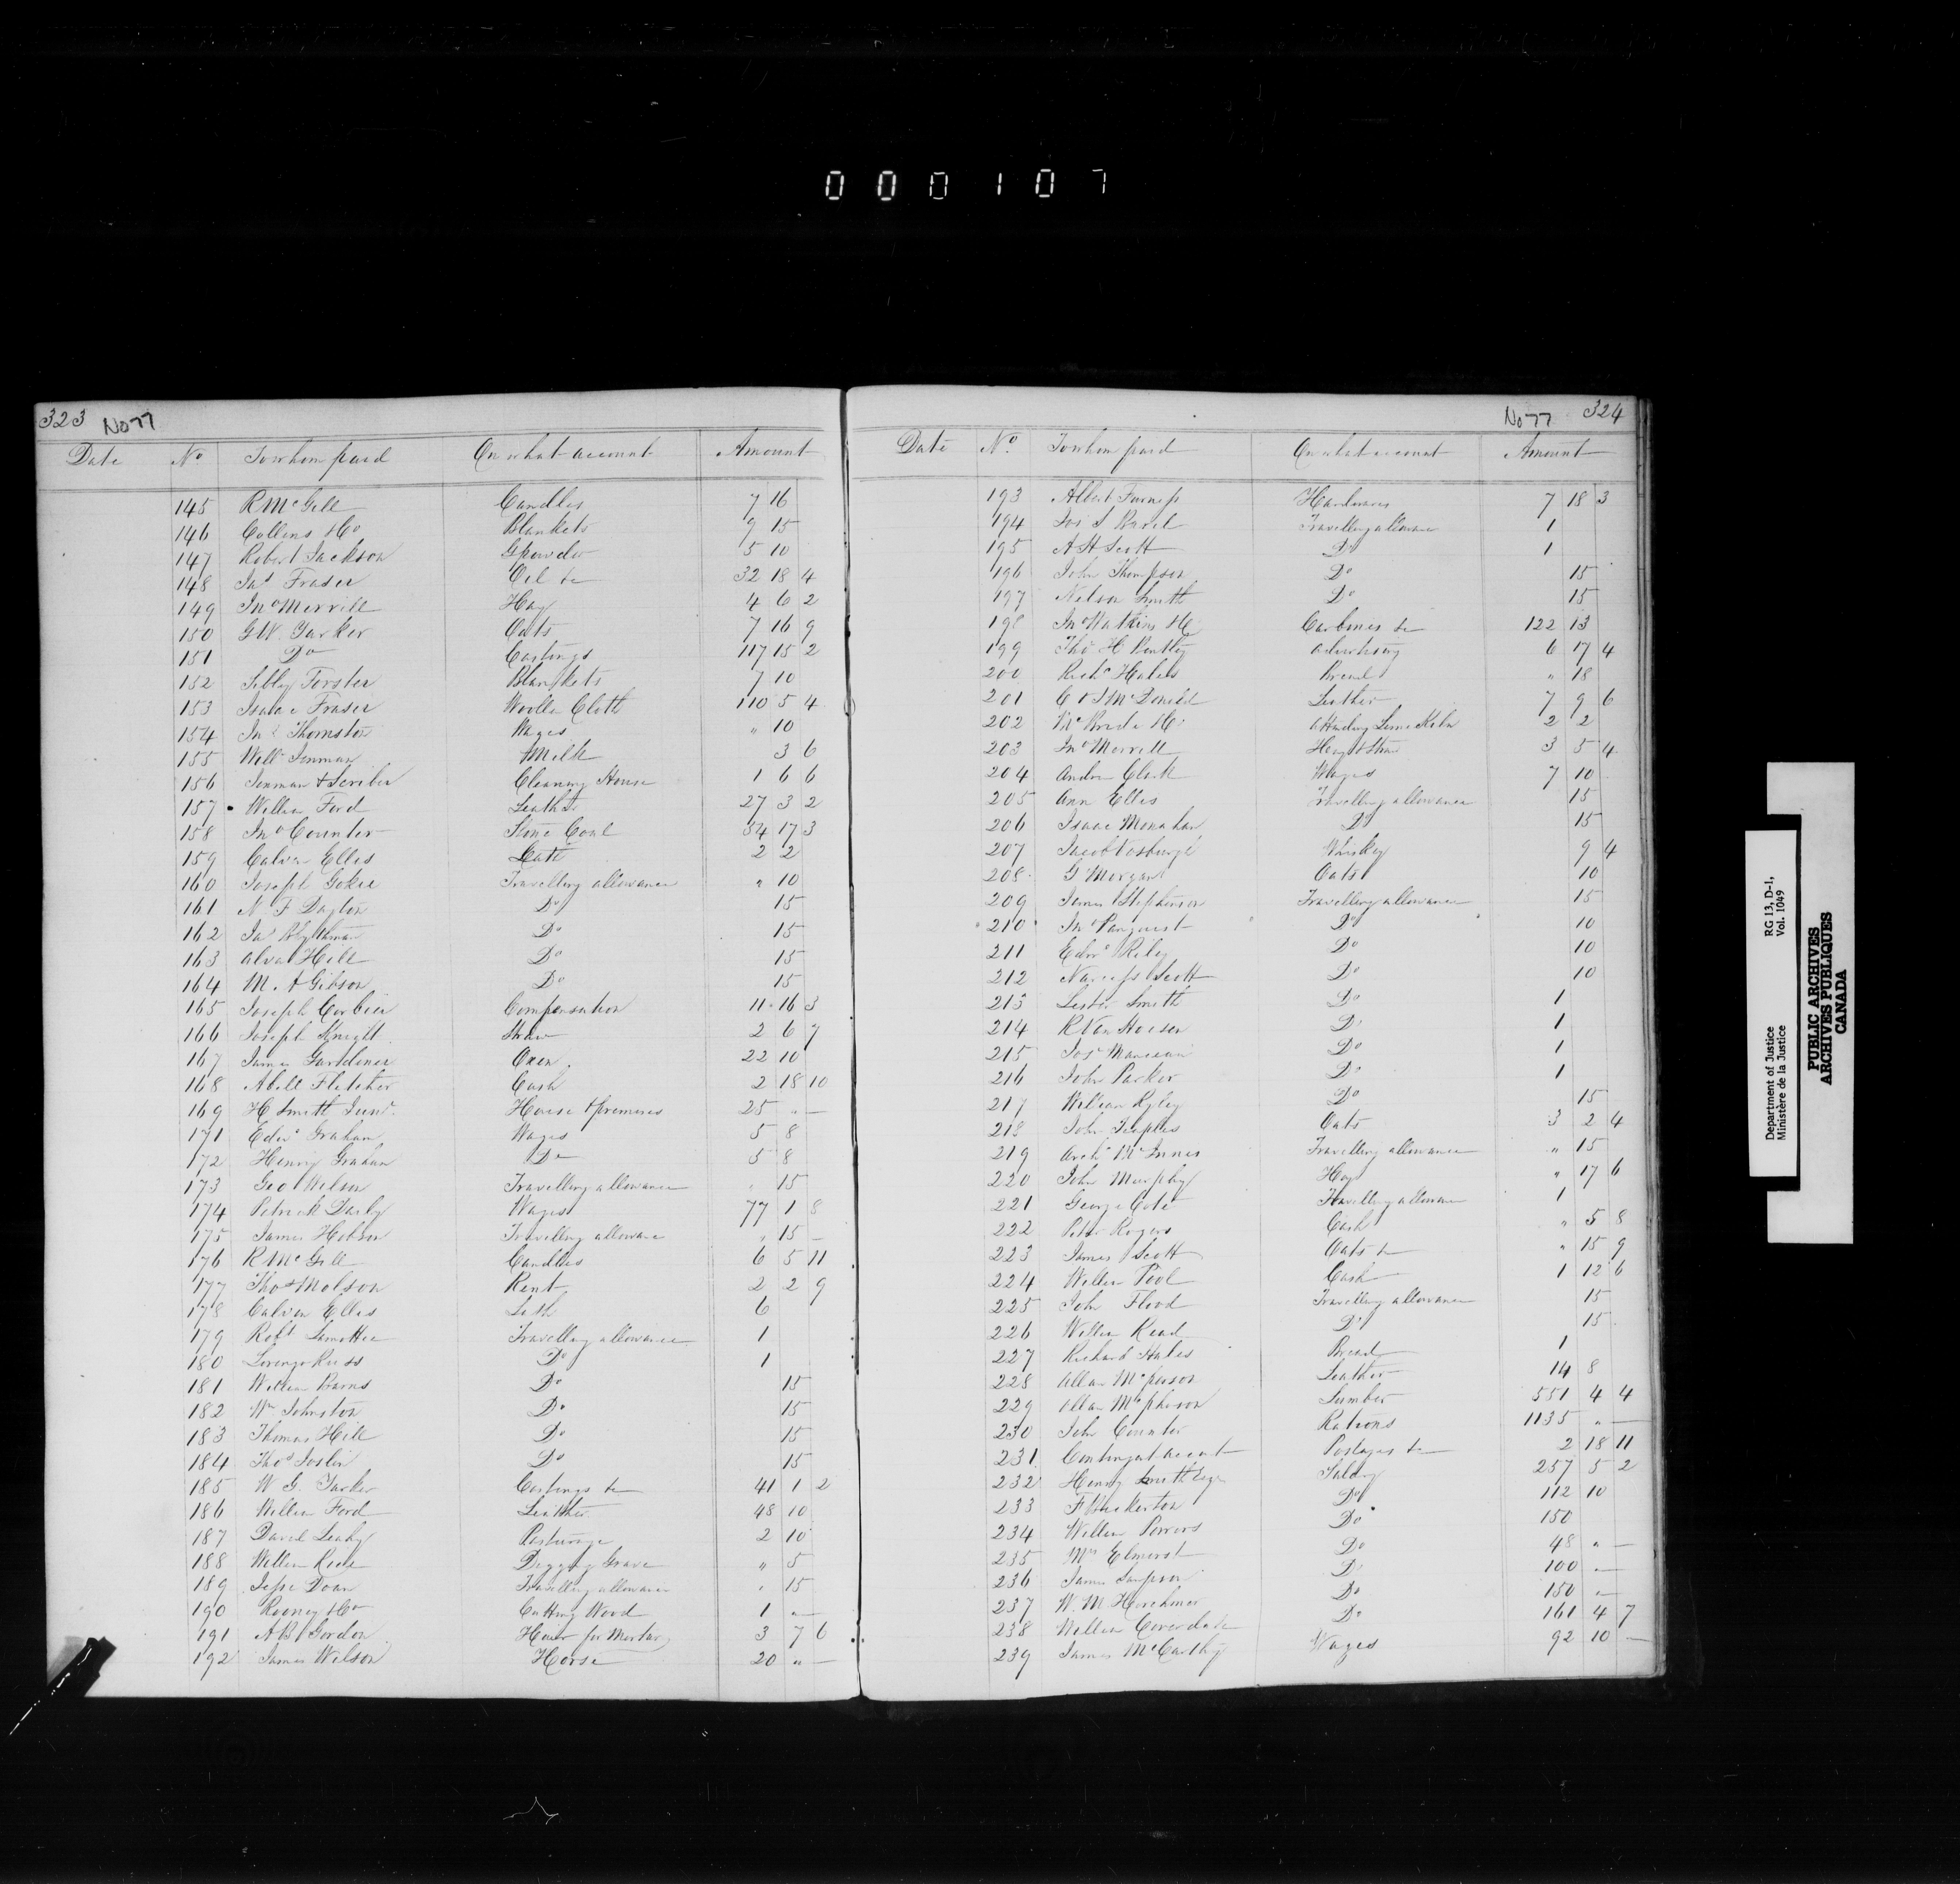 0 0 0 1 0 7
323 No 77
Date No To whom paid On what account Amount
145 R McGill Candles 7 16
146 Collins & Co Blankets 9 15
147 Robert Jackson Gpowder 5 10
148 Jas Fraser Oil &c 32 18 4
149 Jno Merrill Hay 4 6 2
150 G W. Yarker Oats 7 16 9
151 Do Castings 117 15 2
152 Sibby Forster Blankets 7 10
153 Isaac Fraser Woollen Cloth 110 5 4
154 Thornston Wages " 10
155 Willm Inman Milk 3 6
156 Inman & Scriber Cleaning House 1 6 6
157 William Ford Leather 27 3 2
158 Jno Counter Stone Coal 34 17 3
159 Calvin Ellis Lath 2 2
160 Joseph Gokee Travelling allowance " 10
161 N F Dayton Do 15
162 Jas Blythman Do 15
163 Alva Hill Do 15
164 M. A Gibson Do 15
165 Joseph Corbier Compensation 11 16 3
166 Joseph Knight Straw 2 6 7
167 James Gardiner Oxen 22 10
168 Abell Fletcher Cash 2 18 10
169 H Smith Junr. House & premises 25 " —
171 Edwd Graham Wages 5 8
172 Henry Graham Do 5 8
173 Geo Wilson Travelling allowance " 15
174 Patrick Darby Wages 77 1 8
175 James Hobson Travelling allowance " 15 —
176 R McGill Candles 6 5 11
177 Thos Molson Rent 2 2 9
178 Calvin Ellis Lath 6
179 Robt Lamotte Travelling allowance 1
180 Lorenzo Russ Do 1
181 William Barns Do 15
182 Wm Johnston Do 15
183 Thomas Hill Do 15
184 Thos Joslin Do 15
185 W G. Yarker Castings &c 41 1 2
186 William Ford Leather 48 10
187 David Leahy Pasturage 2 10
188 William Rice Digging Grave " 5
189 Jesse Doan Travelling allowance " 15
190 Rooney & Co Cutting Wood 1 " —
191 A B Gordon Hair for Mortar 3 7 6
192 James Wilson Horse 20 " —
No 77 324
Date No. To whom paid On what account Amount
193 Albert Furness Hardwares 7 18 3
194 Jos S Travelling allowance 1
195 A H Scott Do 1
196 John Thompson Do 15
197 Nelson Smith Do 15
198 Jno Watkins & Co Carbines &c 122 13
199 Thos H Bentley advertising 6 17 4
200 Richd Hales Bread " 18
201 C & J McDonald Leather 7 9 6
202 McBride & Co attending Lime Kiln 2 2
203 Jno Merrill Hay & Straw 3 5 4
204 Andw Clark Wages 7 10
205 Ann Ellis Travelling allowance 15
206 Isaac Monahan Do 15
207 Jacob Vosburgh Whiskey 9 4
208 G Morgan Oats 10
209 James Stephenson Travelling allowance 15
210 Jno Panquist Do 10
211 Edwd Riley Do 10
212 Narcisse Scott Do 10
213 Lester Smith Do 1
214 R Van Hoesen Do 1
215 Jos Manceau Do 1
216 John Parker Do 1
217 William Ryley Do 15
218 John Peoples Oats 3 2 4
219 Archd McInnes Travelling allowance " 15
220 John Murphy Hay " 17 6
221 George Cote Travelling allowance 1
222 Peter Rogers Cash " 5 8
223 James Scott Oats &c " 15 9
224 William Pool Cash 1 12 6
225 John Flood Travelling allowance 15
226 William Read Do 15
227 Richard Hales Bread 1
228 Allan McPherson Leather 14 8
229 Allan McPherson Lumber 551 4 4
230 John Counter Rations 1135 " —
231 Contingent account Postages &c 2 18 11
232 Henry Smith Esqr Salary 257 5 2
233 F Bickerton Do 112 10
234 William Powers Do 150
235 Mrs Elmerst Do 48 " —
236 James Sampson Do 100 " —
237 W. M. Herchmer Do 150 " —
238 William Coverdale Do 161 4 7
239 James McCarthy Wages 92 10 —
Department of Justice RG 13, D-1,
Ministère de la Justice Vol. 1049
PUBLIC ARCHIVES
ARCHIVES PUBLIQUES
CANADA